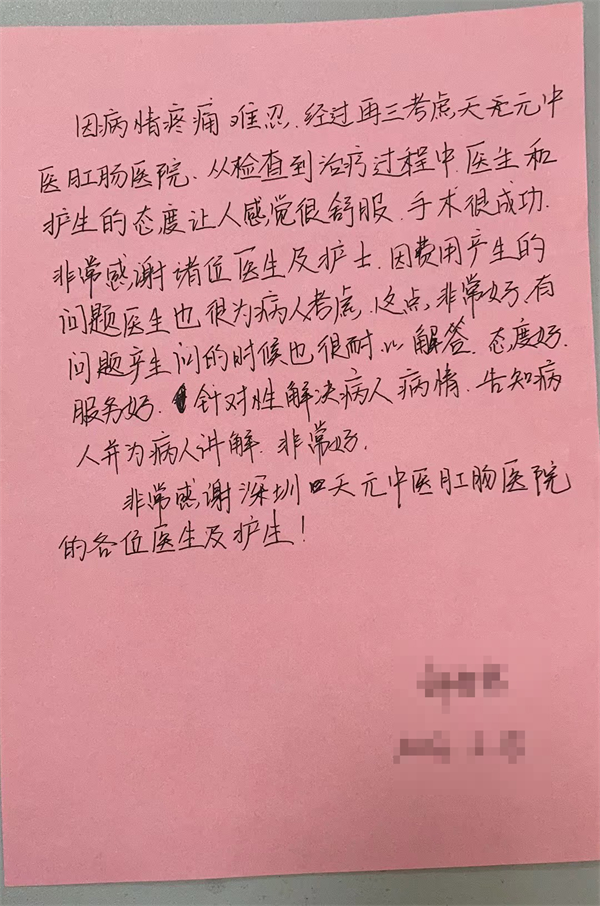 因病情疼痛难忍.经过再三考虑天元中
医肛肠医院、从检查到治疗过程中.医生和
护生的态度让人感觉很舒服.手术很成功.
非常感谢诸位医生及护士.因费用产生的
问题医生也很为病人考虑,这点,非常好.有
问题产生问的时候也很耐心解答.态度好.
服务好.针对性解决病人病情.告知病
人并为病人讲解.非常好.
非常感谢深圳天元中医肛肠医院
的各位医生及护生!